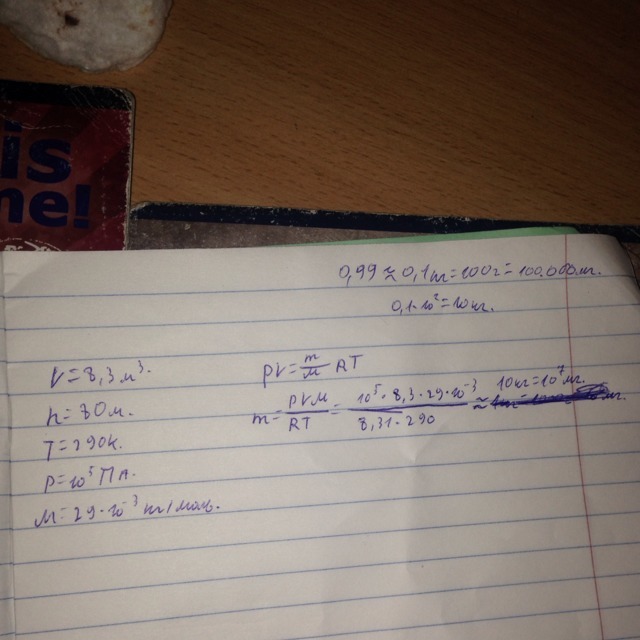 is
ne!
0,99 ≈ 0,1 кг = 100 г = 100.000 мг.
0,1·10² = 10 кг.
V = 8,3 м³.
h = 80 м.
T = 290 К.
P = 10⁵ Па.
M = 29·10⁻³ кг/моль.
pV = m/M RT
m = pVM/RT = 10⁵·8,3·29·10⁻³/8,31·290 ≈ 10 кг = 10⁷ мг.